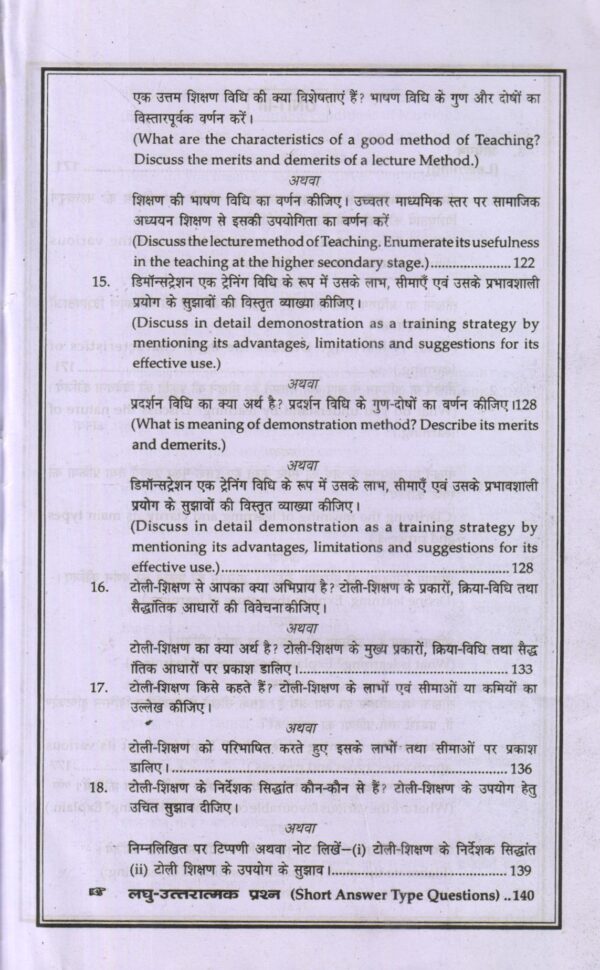 एक उत्तम शिक्षण विधि की क्या विशेषताएं हैं? भाषण विधि के गुण और दोषों का
विस्तारपूर्वक वर्णन करें।
(What are the characteristics of a good method of Teaching?
Discuss the merits and demerits of a lecture Method.)
अथवा
शिक्षण की भाषण विधि का वर्णन कीजिए। उच्चतर माध्यमिक स्तर पर सामाजिक
अध्ययन शिक्षण से इसकी उपयोगिता का वर्णन करें
(Discuss the lecture method of Teaching. Enumerate its usefulness
in the teaching at the higher secondary stage.)..................... 122
15. डिमॉन्सट्रेशन एक ट्रेनिंग विधि के रूप में उसके लाभ, सीमाएँ एवं उसके प्रभावशाली
प्रयोग के सुझावों की विस्तृत व्याख्या कीजिए।
(Discuss in detail demonostration as a training strategy by
mentioning its advantages, limitations and suggestions for its
effective use.)
अथवा
प्रदर्शन विधि का क्या अर्थ है? प्रदर्शन विधि के गुण-दोषों का वर्णन कीजिए।128
(What is meaning of demonstration method? Describe its merits
and demerits.)
अथवा
डिमॉन्सट्रेशन एक ट्रेनिंग विधि के रूप में उसके लाभ, सीमाएँ और उसके प्रभावशाली
प्रयोग के सुझावों की विस्तृत व्याख्या कीजिए।
(Discuss in detail demonstration as a training strategy by
mentioning its advantages, limitations and suggestions for its
effective use.)............................................................ 128
16. टोली-शिक्षण से आपका क्या अभिप्राय है? टोली-शिक्षण के प्रकारों, क्रिया-विधि तथा
सैद्धांतिक आधारों की विवेचना कीजिए।
अथवा
टोली-शिक्षण का क्या अर्थ है? टोली-शिक्षण के मुख्य प्रकारों, क्रिया-विधि तथा सैद्ध
ांतिक आधारों पर प्रकाश डालिए।............................................ 133
17. टोली-शिक्षण किसे कहते हैं? टोली-शिक्षण के लाभों एवं सीमाओं या कमियों का
उल्लेख कीजिए।
अथवा
टोली-शिक्षण को परिभाषित करते हुए इसके लाभों तथा सीमाओं पर प्रकाश
डालिए।..................................................................... 136
18. टोली-शिक्षण के निर्देशक सिद्धांत कौन-कौन से हैं? टोली-शिक्षण के उपयोग हेतु
उचित सुझाव दीजिए।
अथवा
निम्नलिखित पर टिप्पणी अथवा नोट लिखें–(i) टोली-शिक्षण के निर्देशक सिद्धांत
(ii) टोली शिक्षण के उपयोग के सुझाव।.................................... 139
☞ लघु-उत्तरात्मक प्रश्न (Short Answer Type Questions) ..140